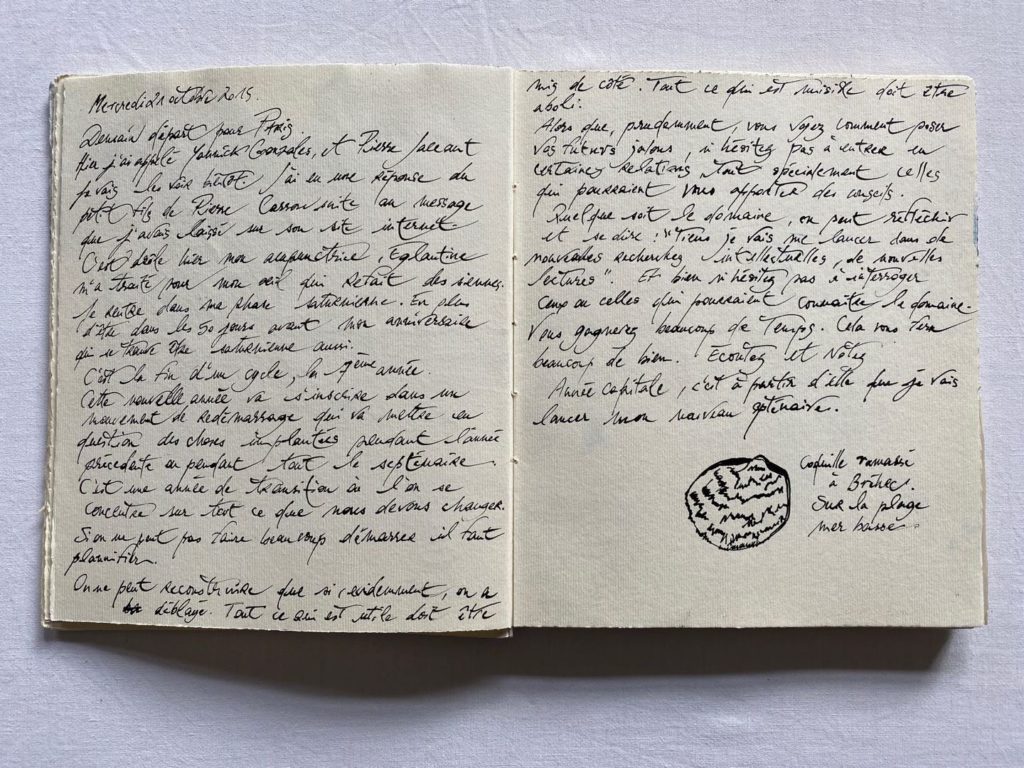 Mercredi 21 octobre 2015.
Demain départ pour Paris.
j'ai appelé Yannick Gonzales, et Pierre
je vais les voir bientôt. J'ai eu une réponse du
petit fils de Pierre suite au message
que j'avais laissé sur son site internet.
C'est drôle hier mon acupunctrice, Eglantine
m'a traité pour mon œil qui refait des siennes.
Je rentre dans ma phase saturnienne. En plus
d'être dans les 50 jours avant mon anniversaire
qui se trouve être saturnienne aussi.
C'est la fin d'un cycle, la 7ème année.
Cette nouvelle année va s'inscrire dans un
mouvement de redémarrage qui va mettre en
question des choses implantées pendant l'année
précédente ou pendant tout le septénaire.
C'est une année de transition où l'on se
concentre sur tout ce que nous devons changer.
Si on ne peut pas faire beaucoup démarrer il faut
plannifier.
On ne peut reconstruire que si, evidemment, on a
déblayé. Tout ce qui est utile doit être
mis de coté. Tout ce qui est nuisible doit être
aboli.
Alors que, prudemment, vous voyez comment poser
vos futurs jalons, n'hésitez pas à entrer en
certaines relations tout spécialement celles
qui pourraient vous apporter des conseils.
Quelque soit le domaine, on peut réfléchir
et se dire : "Tiens je vais me lancer dans de
nouvelles recherches intellectuelles, de nouvelles
lectures". Et bien n'hésitez pas à interroger
ceux ou celles qui pourraient connaître le domaine.
Vous gagnerez beaucoup de temps. Cela vous fera
beaucoup de bien. Écoutez et Notez
Année capitale, c'est à partir d'elle que je vais
lancer mon nouveau septénaire.
Coquille ramassée
à Bréhec.
Sur la plage
mer basse.